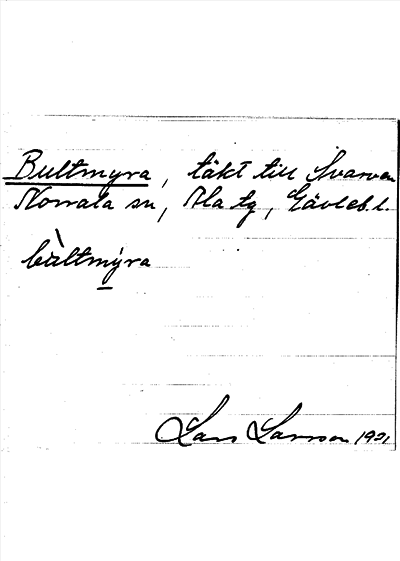 Bultmyra, täkt till Svarven
Norrala sn, Ala tg, Gävleb. l.
bultmyra
Lars Larsson 1921